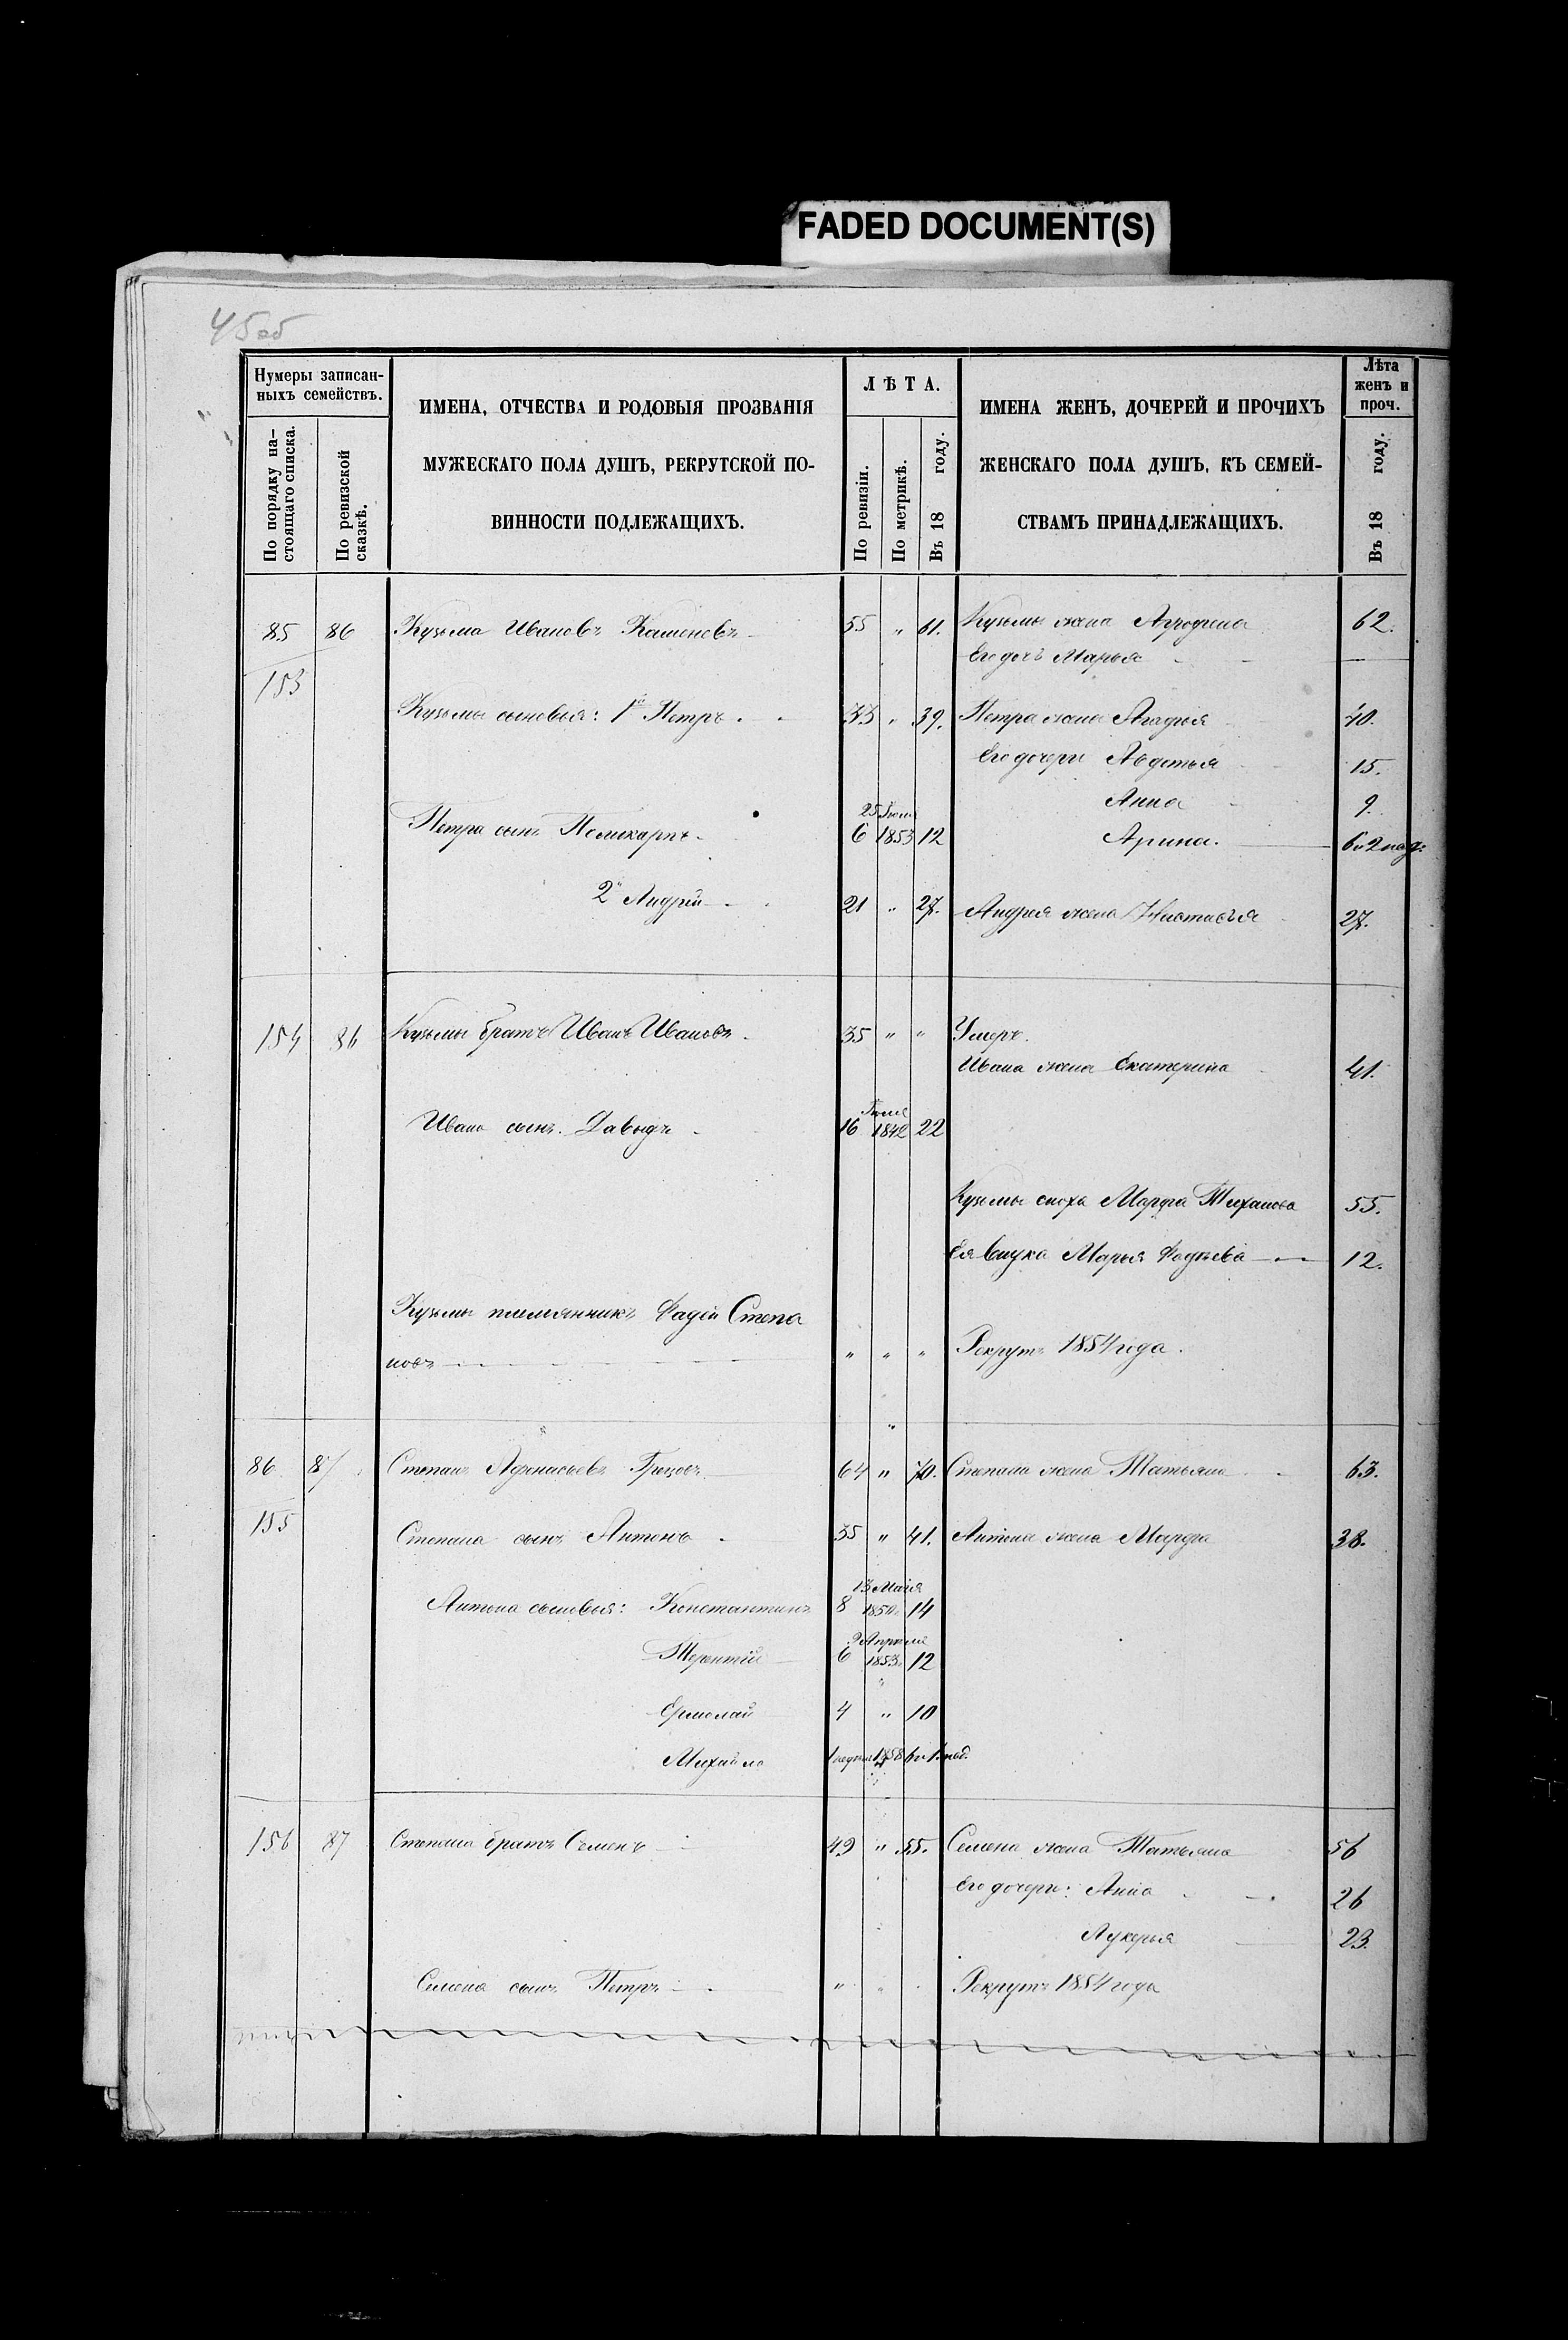 FADED DOCUMENT(S)
45об
Нумеры записан-
ныхъ семействъ.
По порядку на-
стоящаго списка.
По ревизской
сказкѣ.
ИМЕНА, ОТЧЕСТВА И РОДОВЫЯ ПРОЗВАНІЯ
МУЖЕСКАГО ПОЛА ДУШЪ, РЕКРУТСКОЙ ПО-
ВИННОСТИ ПОДЛЕЖАЩИХЪ.
ЛѢТА.
По ревизіи.
По метрикѣ.
Въ 18 году.
ИМЕНА ЖЕНЪ, ДОЧЕРЕЙ И ПРОЧИХЪ
ЖЕНСКАГО ПОЛА ДУШЪ, КЪ СЕМЕЙ-
СТВАМЪ ПРИНАДЛЕЖАЩИХЪ.
Лѣта
женъ и
проч.
Въ 18 году.
85 86 Кузьма Ивановъ 55 " 61. Кузьмы жена Агрофена 62.
Его дочь Марья
153
Кузьмы сыновья: 1й Петръ 33 " 39. Петра жена Агафья 40.
Его дочери Авдотья 15.
Анна 9.
25
Петра сынъ Поликарпъ 6 1853 12 Арина. 6
2й Андрей 21 " 27. Андрея жена Настасья 27.
154 86 Кузьмы братъ Иванъ Ивановъ 35 " " Умеръ.
Ивана жена Екатерина 41.
Ивана сынъ Давыдъ 16 1842 22
Кузьмы сноха Марфа Тиханова 55.
Ея внука Марья Фадѣева 12.
Кузьмы племянникъ Фадѣй Степа
новъ " " " Рекрутъ 1854 года.
86 87 Степанъ Афонасьевъ 64 " 70. Степана жена Татьяна 63.
155
Степана сынъ Антонъ 35 " 41. Антона жена Марфа 38.
13 Маія
Антона сыновья: Константинъ 8 14
Апрѣля
Терентій 6 1853 12
Ермолай 4 " 10
Михайло 1 1858 6
156 87 Степана братъ Семенъ 49 " 55. Семена жена Татьяна 56
Его дочери: Анна 26
Лукерья 23.
Семена сынъ Петръ " Рекрутъ 1854 года